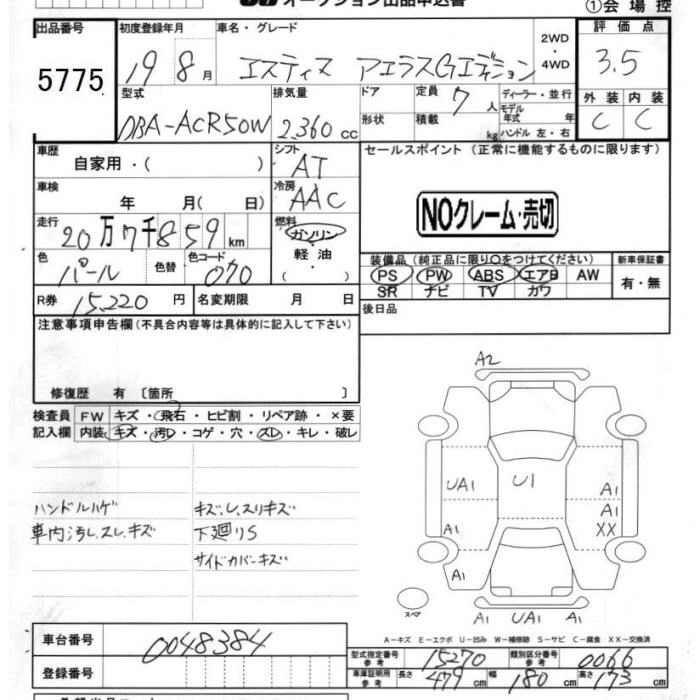 オークション出品申込書
①会場控
出品番号 初度登録年月 車名・グレード 評価点
5775 19 8月 エスティマ アエラスGエディション 2WD・4WD 3.5
型式 排気量 ドア 定員 7人 ディーラー・並行 外装 内装
DBA-ACR50W 2,360cc 形状 積載 kg モデル年式 年 ハンドル 左・右 C C
車歴 自家用・( ) シフト AT セールスポイント(正常に機能するものに限ります)
車検 年 月( 日) 冷房 AAC NOクレーム・売切
走行 20万7千859km 燃料 ガソリン・軽油・( )
装備品(純正品に限り○をつけてください) 新車保証書
色 パール 色替 色コード 070 PS PW ABS エアB AW 有・無
SR ナビ TV カワ
R券 15,220円 名変期限 月 日 後日品
注意事項申告欄(不具合内容等は具体的に記入して下さい)
修復歴 有〔箇所 〕
検査員 FW キズ・飛石・ヒビ割・リペア跡・×要
記入欄 内装 キズ・汚レ・コゲ・穴・スレ・キレ・破レ
ハンドルハゲ キズ、し、スリキズ
車内汚し、スレ、キズ 下廻りS
サイドカバーキズ
A2
UA1 U1 A1
A1
A1 XX
A1
スペア
A1 UA1 A1
A-キズ E-エクボ U-凹み W-補修跡 S-サビ C-腐食 XX-交換済
車台番号 0048384
型式指定番号 参考 15270 類別区分番号 参考 0066
登録番号 車庫証明用 参考 長さ 479cm 幅 180cm 高さ 173cm